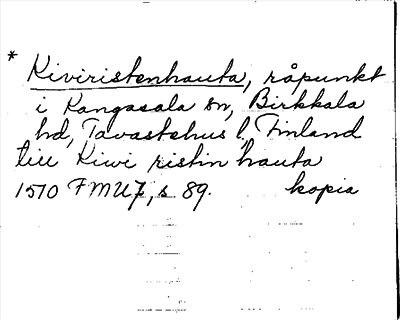 * Kiviristenhauta, råpunkt
i Kangasala sn, Birkkala
hd, Tavastehus l, Finland
till Kiwi ristin hauta
1510 FMU 7, s 89. kopia